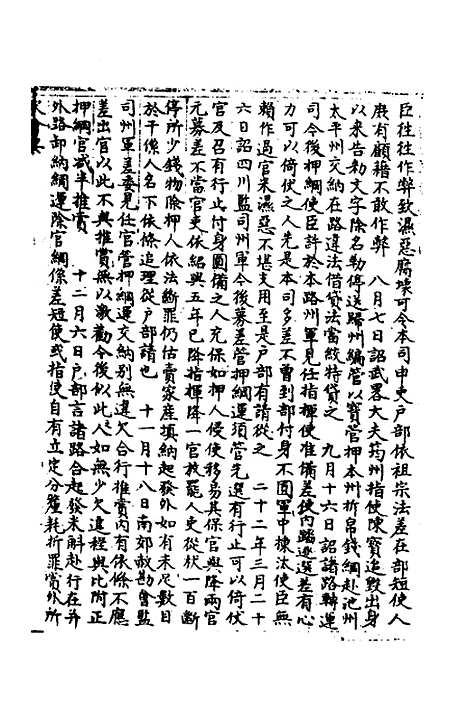 臣往往作弊致濕惡腐壞可令本司申吏戶部依祖宗法差在部短使人
庶有顧藉不敢作弊 八月七日詔武畧大夫筠州指使陳寶追毀出身
以來告勑文字除名勒停送歸州編管以寶管押本州折帛錢綱赴池州
太平州交納在路違法借貸法當絞特貸之 九月十六日詔諸路轉運
司今後押綱使臣許於本路州軍見任指揮使准備差使內踏逐選差有心
力可以倚仗之人先是本司多差不曾到部付身不圓軍中揀汰使臣無
賴作過官米濕惡不堪支用至是戶部有請從之 二十二年三月二十
六日詔四川監司州軍今後募差管押綱運須管先選有行止可以倚仗
官及召有行止付身圓備之人充保如押人侵使移易其保官與降兩官
元募差不當官吏依紹興五年已降指揮降一官人吏從杖一百斷
停所少錢物除押人依法斷罪仍估賣家產填納起發外如有未足數目
於干係人名下依條追理從戶部請也 十一月十八日南郊赦勘會監
司州軍差委見任官管押綱運交納別無違欠合行推賞內有依條不應
差出官以此不與推賞無以激勸今後似此人如無少欠違程與比附正
押綱官減半推賞 十二月六日戶部言諸路合起發米斛赴行在并
外路卸納綱運除官綱係差短使或指使自有立定分釐耗折罪賞外所